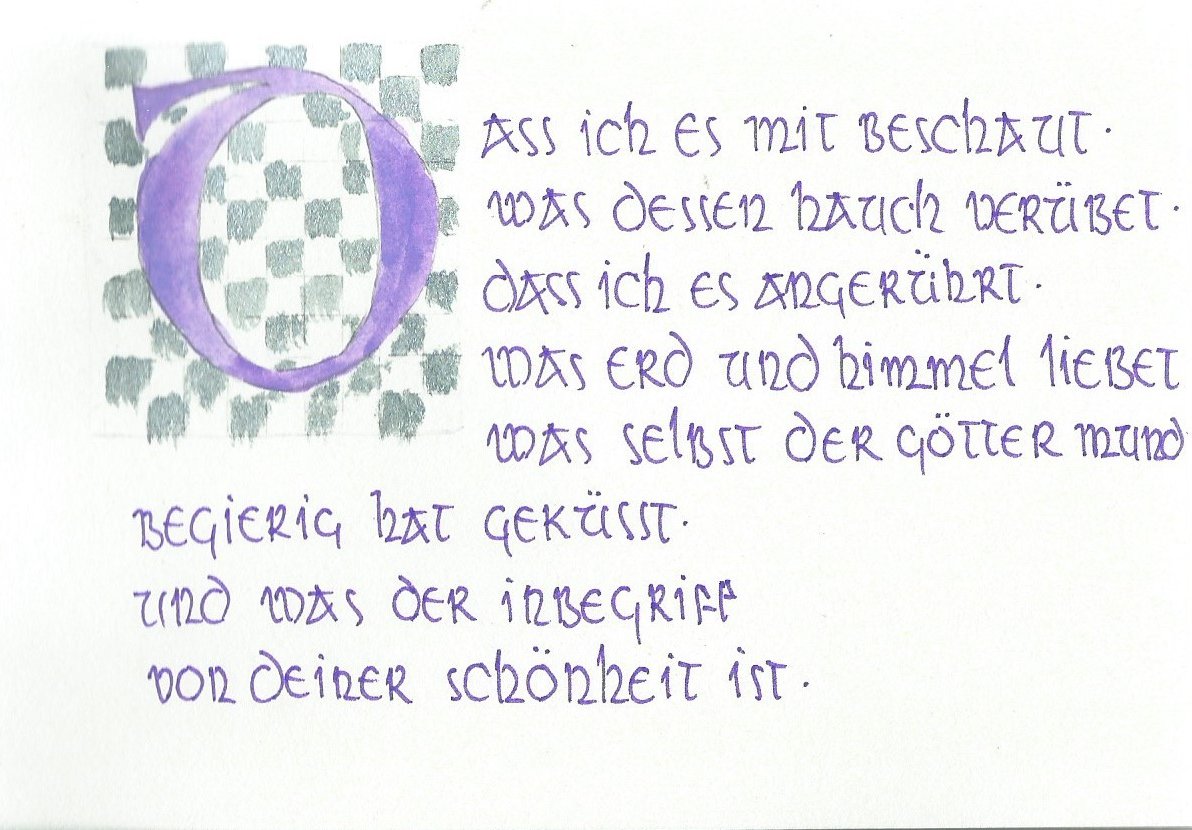 Dass ich es mit beschaut.
was dessen hauch verübet.
dass ich es angerührt.
was erd und himmel liebet
was selbst der götter mund
begierig hat geküsst.
und was der inbegriff
von deiner schönheit ist.